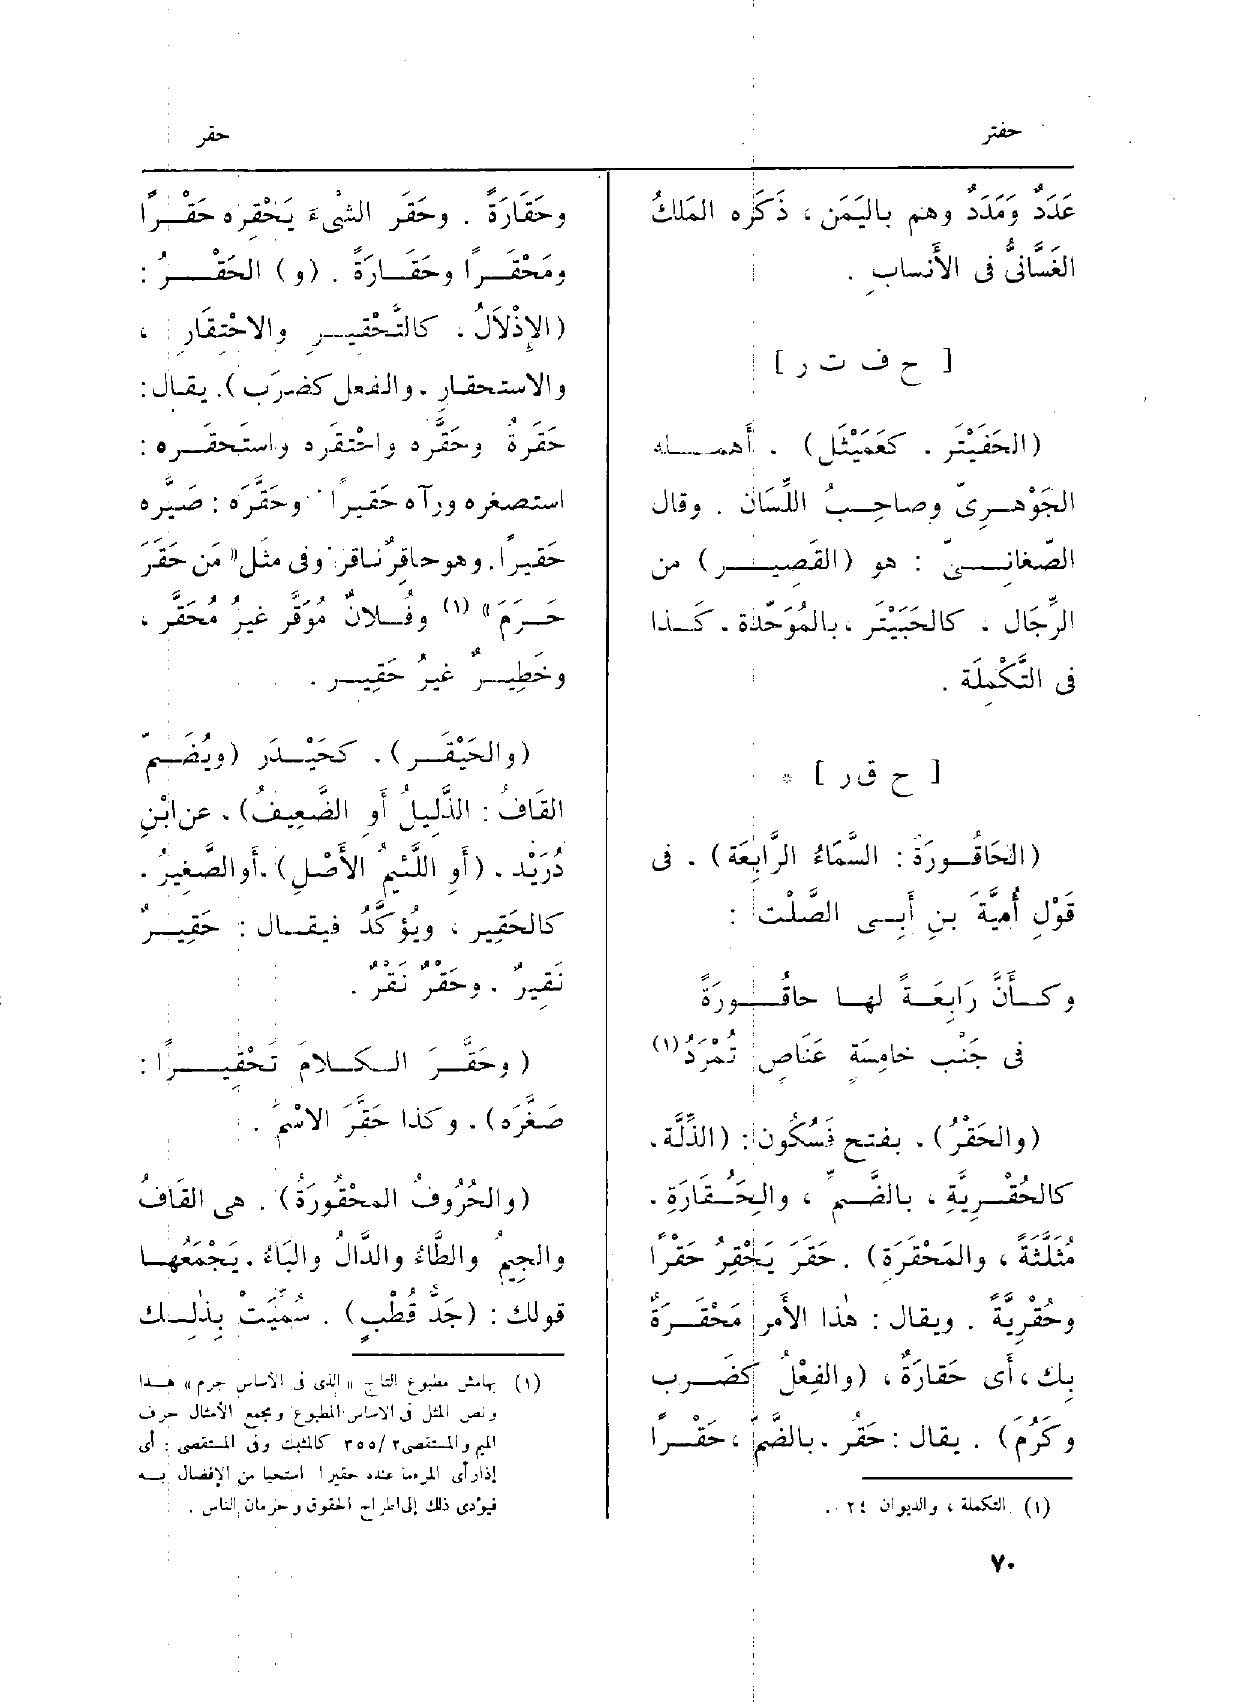 حفتر
حقر
عَدَدٌ ومَدَدٌ وهم باليَمَن ، ذَكَره المَلكُ
الغَسّانىُّ فى الأَنسابِ .
[ ح ف ت ر ]
(الحَفَيْتَر ، كعَمَيْثَل) . أَهمـــله
الجَوْهـرىّ وصاحِـبُ اللِّسَان . وقال
الصّغانــىّ : هو (القَصِيــر) من
الرِّجَال ، كالحَبَيْتَر ، بالمُوَحَّدة . كَــذا
فى التَّكْمِلَة .
[ ح ق ر ] *
(الحَاقُــورَة : السَّمَاءُ الرَّابِعَة) . فى
قَوْلِ أُمَيَّةَ بنِ أَبِــى الصَّلْت :
وكــأَنَّ رَابِعَــةً لهـا حاقُــورَةً
فى جَنْب خامِسَة عَنَاصٍ تُمْرَدُ (١)
(والحَقْرُ) . بفتح فَسُكُون : (الذِّلَّة .
كالحُقْــرِيَّة ، بالضَّمِّ ، والحَُِقـارَةِ .
مُثَلَّثةً ، والمَحْقَرَة) . حَقَرَ يَحْقِرُ حَقْرًا
وحُقْرِيَّةً . ويقال : هٰذا الأَمر مَحْقَــرَةٌ
بِك ، أَى حَقارَةٌ ، (والفِعْلُ كضَــرب
وكَرُمَ) . يقال : حَقُر . بالضَّمّ ، حَقْــرًا
(١) التكملة ، والديوان ٢٤ .
وحَقَارَةً . وحَقَر الشىْءَ يَحْقِره حَقْــرًا
ومَحْقَــرًا وحَقَــارَةً . (و) الحَقْــرُ :
(الإِذْلَالُ . كالتَّحْقيــرِ والاحْتِقَار ،
والاستحقار . والفعل كضرَب) . يقال :
حَقَرهُ وحَقَّره واحْتَقَره واستَحقَــره :
استصغره ورآه حَقيراً . وحَقَّرَه : صَيَّره
حَقيرًا . وهو حاقِرٌ ناقِر . وفى مثَل « مَن حَقَرَ
حَــرَمَ » (١) وفُــلانٌ مُوَقَّر غيرُ مُحَقَّر ،
وخَطِيــرٌ غيرُ حَقِيــر .
(والحَيْقَــر) . كحَيْــدَر (ويُضَــمّ
القَافُ : الذَّلِيلُ أَو الضَّعِيفُ) . عن ابْنِ
دُرَيْد . (أَو اللَّئِيمُ الأَصْلِ) . أَو الصَّغِيرُ .
كالحَقِير ، ويُؤكَّدُ فيقــال : حَقِيــرٌ
نَقِيرٌ . وحَقْرٌ نَقْرٌ .
(وحَقَّــرَ الــكَــلَامَ تَحْقِيــرًا :
صَغَّرَه) . وكذا حَقَّرَ الاسْمَ .
(والحُرُوفُ المَحْقُورَةُ) . هى القَافُ
والجِيمُ والطَّاءُ والدَّالُ والبَاءُ . يَجْمَعُهــا
قولك : (جَدُّ قُطْبٍ) . سُمِّيَتْ بِذٰلِـك
(١) بهامش مطبوع التاج « الذى فى الأساس جرم » هــذا
ونص المثل فى الأساس المطبوع ومجمع الأمثال حرف
الميم والمستقصى ٢ / ٣٥٥ كالمثبت وفى المستقصى : أى
إذا رأى المرء ما عنده حقيرا استحيا من الإفضال بــه
فيؤدى ذلك إلى اطراح الحقوق وحرمان الناس .
٧٠